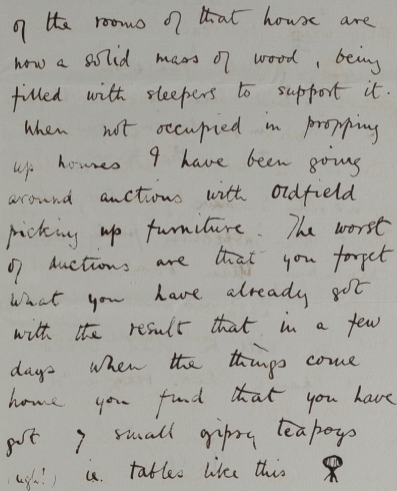 of the rooms of that house are
now a solid mass of wood, being
filled with sleepers to support it.
When not occupied in propping
up houses I have been going
around auctions with Oldfield
picking up furniture. The worst
of auctions are that you forget
what you have already got
with the result that in a few
days when the things come
home you find that you have
got 7 small gipsy teapoys
(ugh!) ie. tables like this